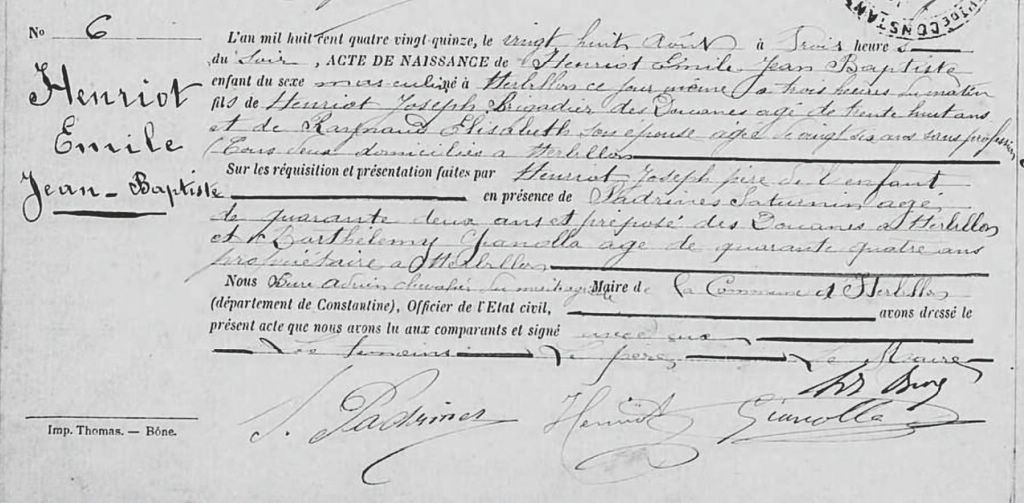 No 6
Henriot
Emile
Jean-Baptiste
L'an mil huit cent quatre vingt-quinze, le vingt huit Août à Trois heures
du Soir, ACTE DE NAISSANCE de Henriot Emile Jean Baptiste
enfant du sexe masculin né à Herbillon ce jour même à trois heures du matin
fils de Henriot Joseph Brigadier des Douanes agé de trente huit ans
et de Raynaud Elisabeth son épouse agée de vingt six ans sans profession
Tous deux domiciliés à Herbillon
Sur les réquisition et présentation faites par Henriot Joseph père de l'enfant
en présence de Padrines Saturnin agé
de quarante deux ans et préposé des Douanes à Herbillon
et Barthélemy Gianolla agé de quarante quatre ans
propriétaire à Herbillon
Nous adrien chevalier du mérite agricole Maire de la Commune d'Herbillon
(département de Constantine), Officier de l'Etat civil, avons dressé le
présent acte que nous avons lu aux comparants et signé avec eux
Les témoins Le père Le Maire
S. Padrines Henriot Gianolla
Imp. Thomas. — Bône.
DE CONSTAN